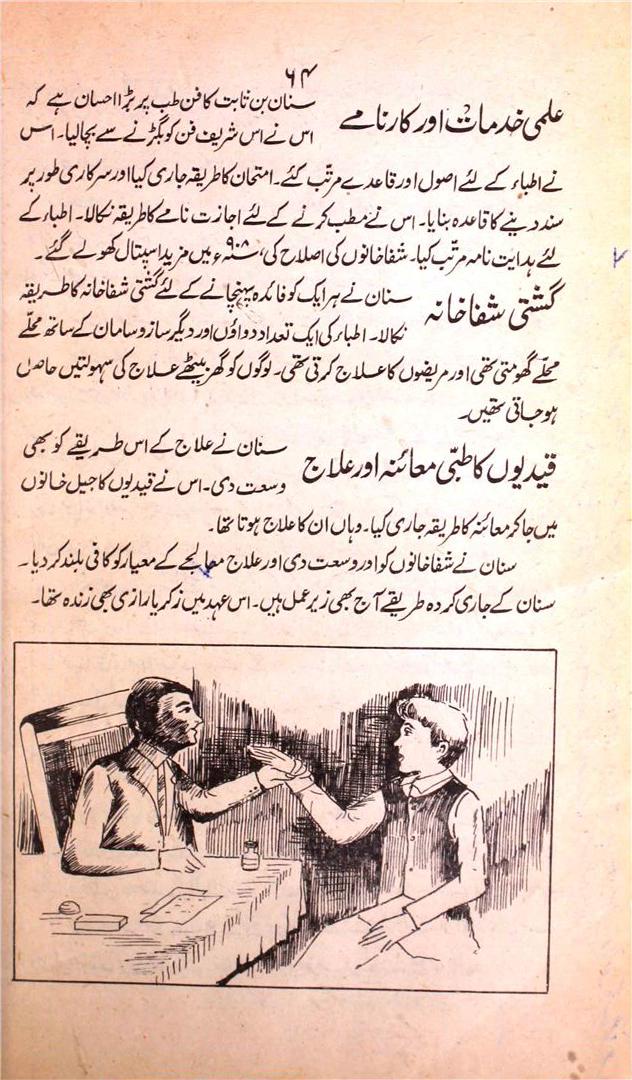 ۶۴
علمی خدمات اور کارنامے سنان بن ثابت کا فن طب پر بڑا احسان ہے کہ
اس نے اس شریف فن کو بگڑنے سے بچالیا۔ اس
نے اطباء کے لئے اصول اور قاعدے مرتب کئے۔ امتحان کا طریقہ جاری کیا اور سرکاری طور پر
سند دینے کا قاعدہ بنایا۔ اس نے مطب کرنے کے لئے اجازت نامے کا طریقہ نکالا۔ اطباء کے
لئے ہدایت نامہ مرتب کیا۔ شفاخانوں کی اصلاح کی، ۹۰۸ء میں مزید اسپتال کھولے گئے۔
گشتی شفاخانہ سنان نے ہر ایک کو فائدہ پہنچانے کے لئے گشتی شفاخانہ کا طریقہ
نکالا۔ اطباء کی ایک تعداد دواؤں اور دیگر ساز و سامان کے ساتھ محلے
محلے گھومتی تھی اور مریضوں کا علاج کرتی تھی۔ لوگوں کو گھر بیٹھے علاج کی سہولتیں حاصل
ہو جاتی تھیں۔
قیدیوں کا طبی معائنہ اور علاج سنان نے علاج کے اس طریقے کو بھی
وسعت دی۔ اس نے قیدیوں کا جیل خانوں
میں جاکر معائنہ کا طریقہ جاری کیا۔ وہاں ان کا علاج ہوتا تھا۔
سنان نے شفاخانوں کو اور وسعت دی اور علاج معالجے کے معیار کو کافی بلند کر دیا۔
سنان کے جاری کردہ طریقے آج بھی زیر عمل ہیں۔ اس عہد میں زکریا رازی بھی زندہ تھا۔